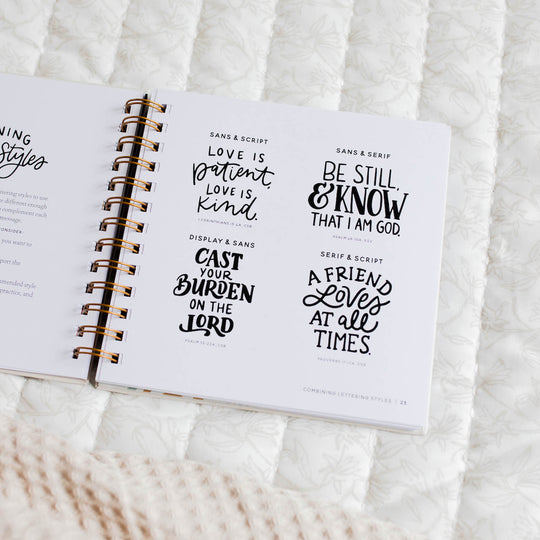 NING
Styles
ettering styles to use
different enough
complement each
message.
ONSIDER:
you want to
pport the
mmended style
practice, and
SANS & SCRIPT
LOVE IS
patient,
LOVE IS
kind.
1 CORINTHIANS 13:4A, CSB
SANS & SERIF
BE STILL,
& KNOW
THAT I AM GOD.
DISPLAY & SANS
CAST
YOUR
BURDEN
ON THE
LORD
PSALM 55:22A, CSB
SERIF & SCRIPT
A FRIEND
Loves
AT all
TIMES.
PROVERBS 17:17A, CSB
COMBINING LETTERING STYLES | 23